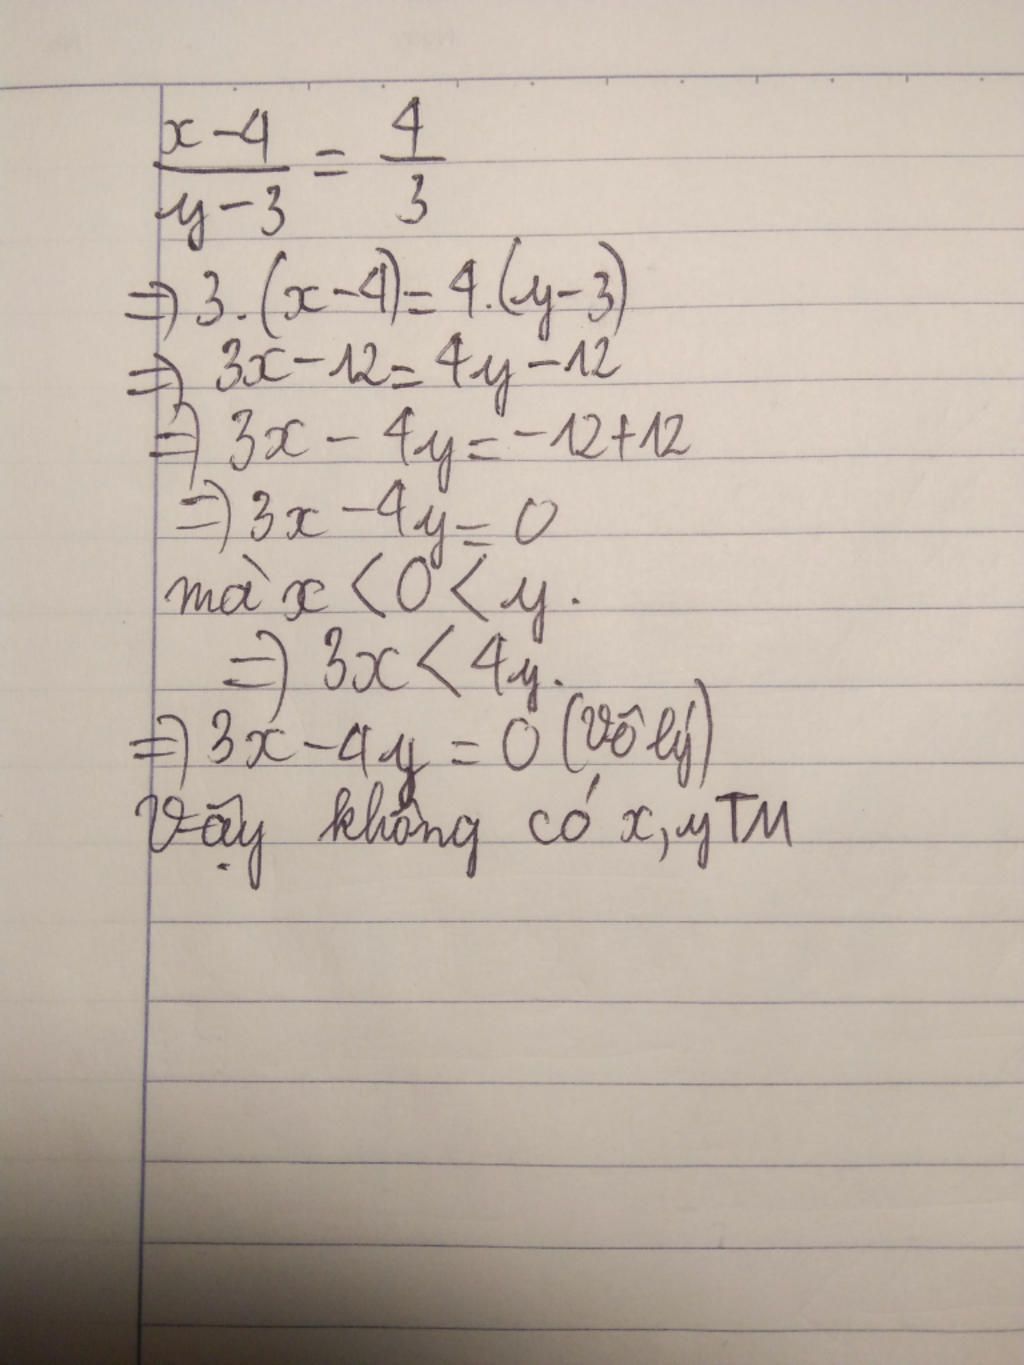 x-4/y-3 = 4/3
=> 3.(x-4) = 4.(y-3)
=> 3x-12 = 4y-12
=> 3x - 4y = -12+12
=> 3x - 4y = 0
mà x < 0 < y.
=> 3x < 4y.
=> 3x-4y = 0 (vô lý)
Vậy không có x, y TM